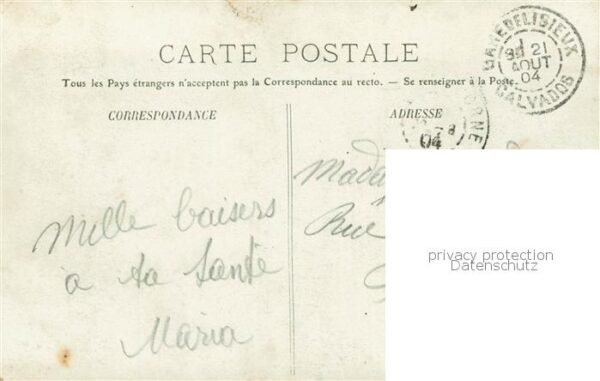 CARTE POSTALE
Tous les Pays étrangers n'acceptent pas la Correspondance au recto. — Se renseigner à la Poste.
CORRESPONDANCE
ADRESSE
GARE DE LISIEUX
21
AOUT
04
CALVADOS
ORNE
04
Mada
Rue
Mille baisers
à ta Santé
Maria
privacy protection
Datenschutz